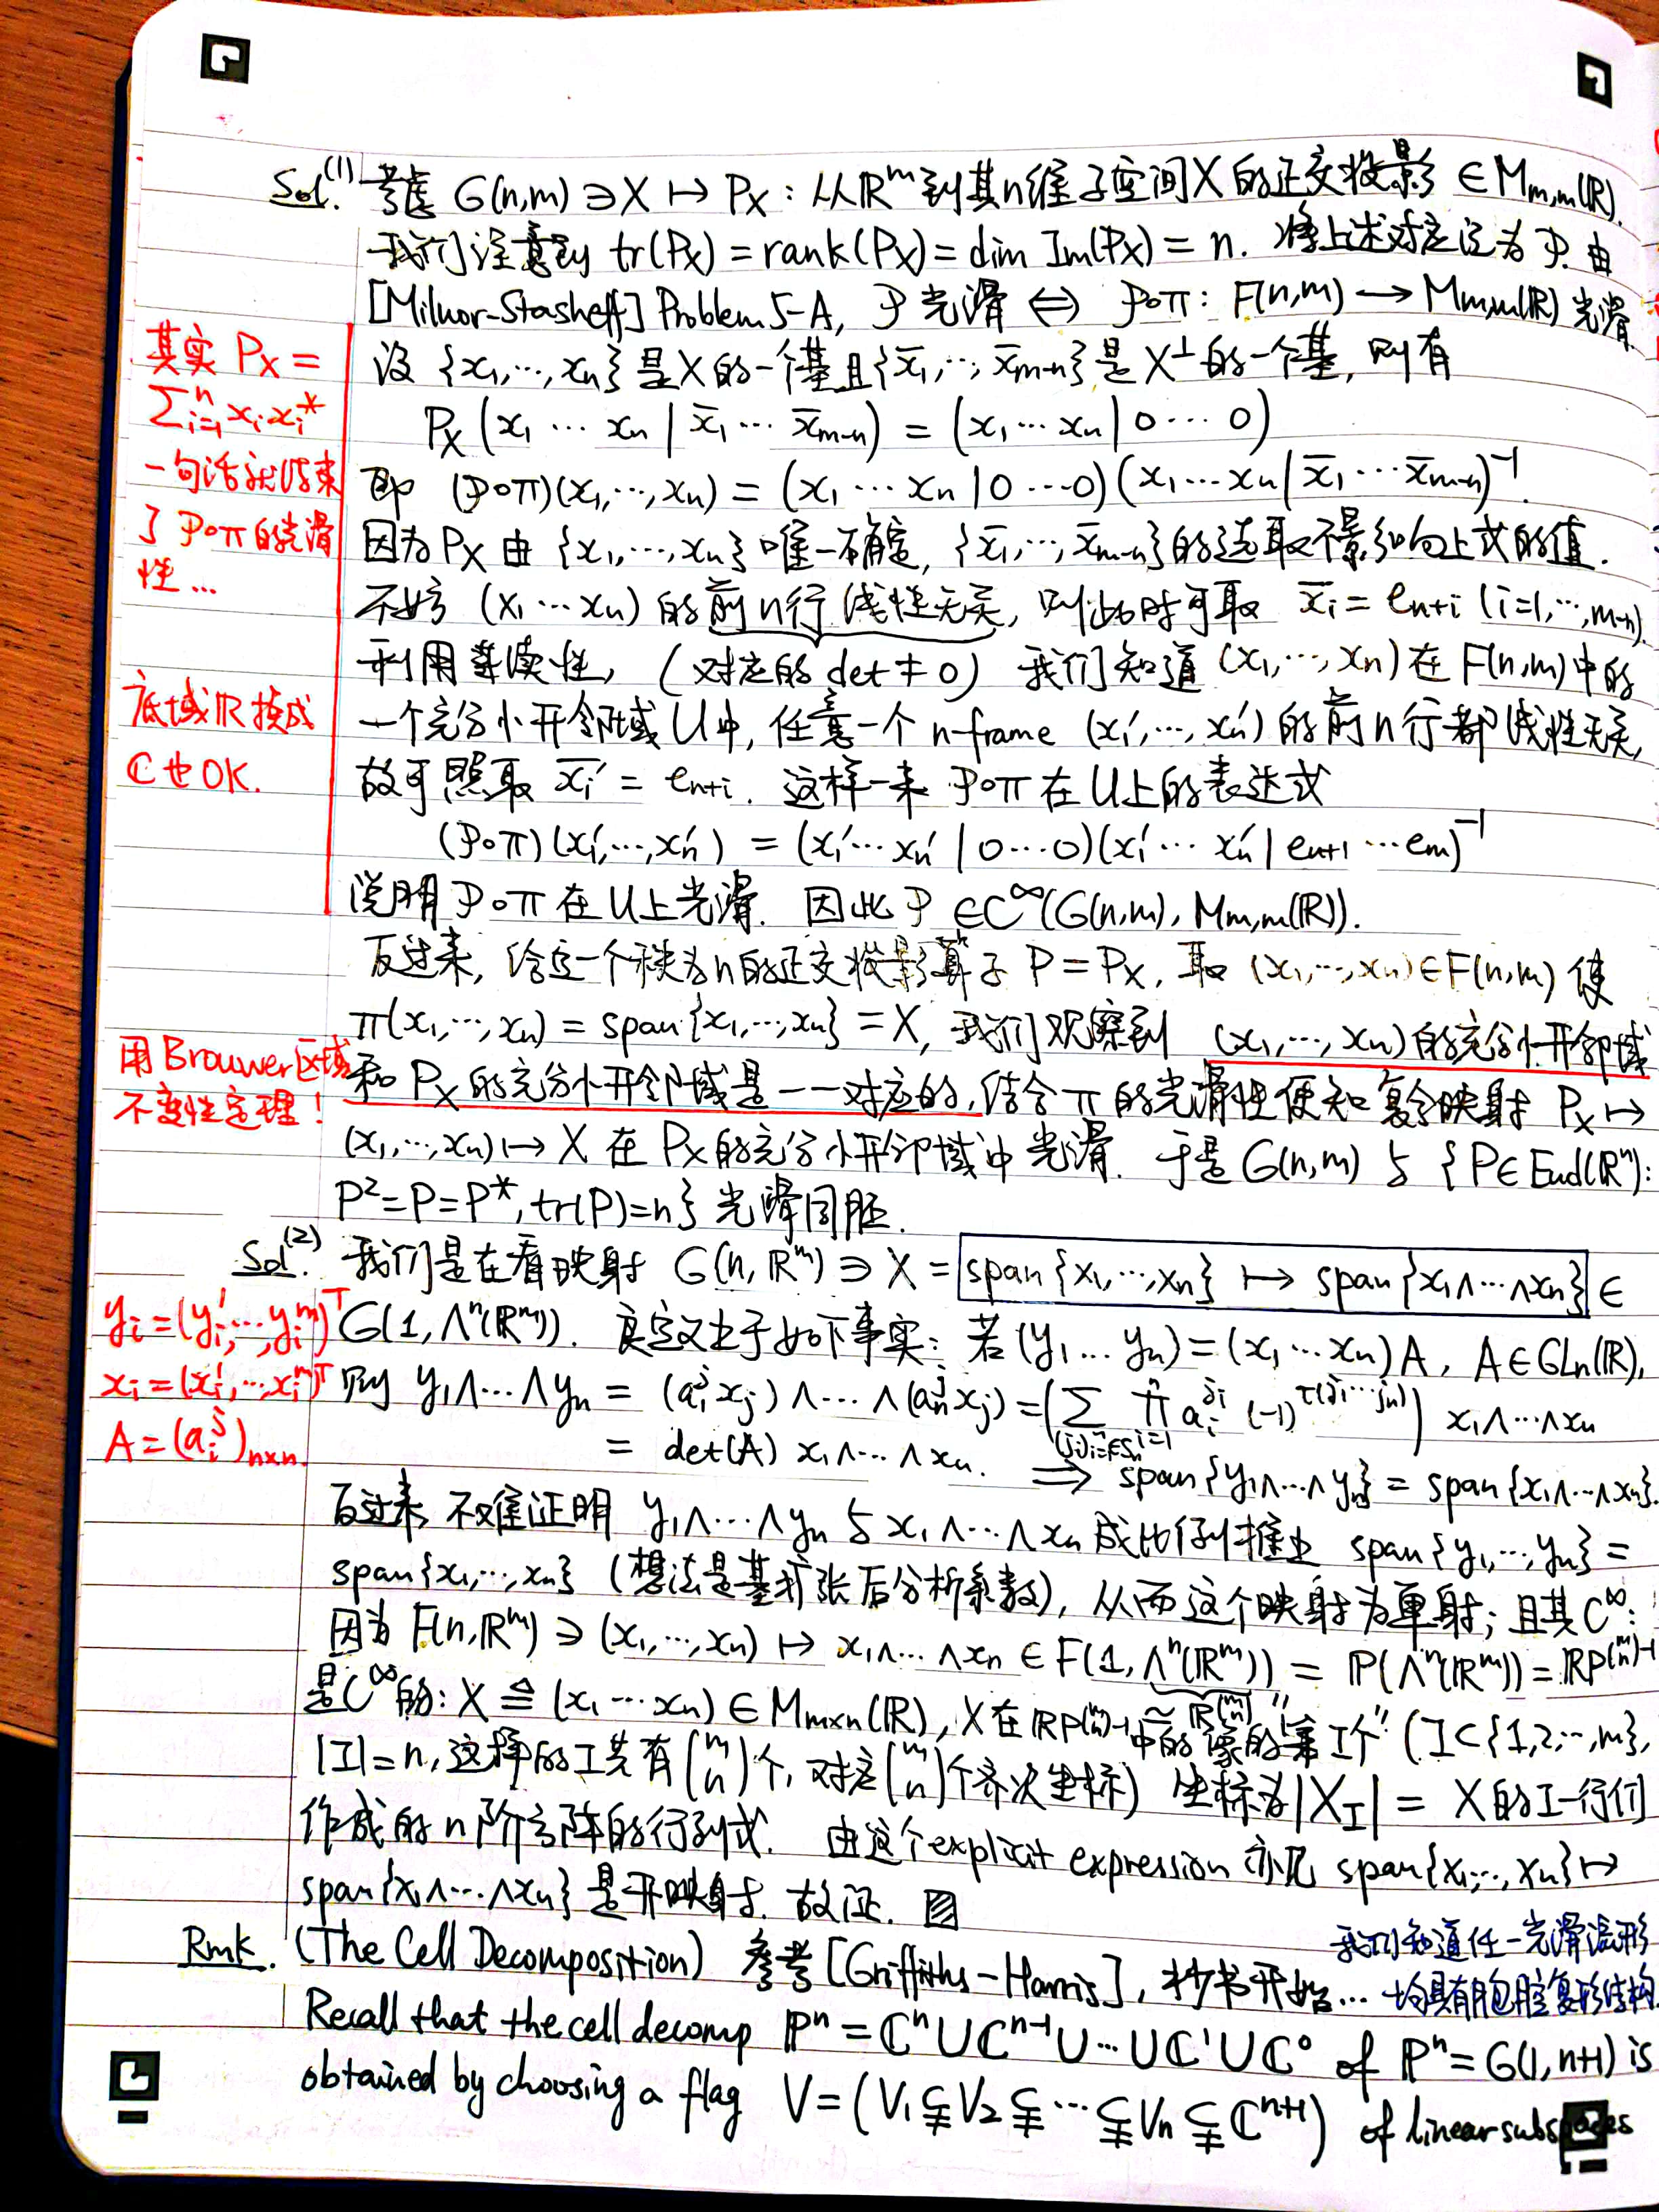 Sol.(1) 考虑 G(n,m) ∋ X ↦ P_X : 从ℝ^m到其n维子空间X的正交投影 ∈ M_{m,m}(ℝ).
我们注意到 tr(P_X) = rank(P_X) = dim Im(P_X) = n. 将上述对应记为 𝒫. 由
[Milnor-Stasheff] Problem 5-A, 𝒫 光滑 ⇔ 𝒫∘π : F(n,m) → M_{m,m}(ℝ) 光滑.
设 {x_1,…,x_n} 是X的一个基且{x̄_1,…,x̄_{m-n}}是X^⊥的一个基, 则有
P_X (x_1 ⋯ x_n | x̄_1 ⋯ x̄_{m-n}) = (x_1 ⋯ x_n | 0 ⋯ 0)
即 (𝒫∘π)(x_1,…,x_n) = (x_1 ⋯ x_n | 0 ⋯ 0)(x_1 ⋯ x_n | x̄_1 ⋯ x̄_{m-n})^{-1}.
因为 P_X 由 {x_1,…,x_n} 唯一确定, {x̄_1,…,x̄_{m-n}}的选取不影响上式的值.
不妨 (x_1 ⋯ x_n) 的前n行线性无关, 则此时可取 x̄_i = e_{n+i} (i=1,…,m-n).
利用连续性, (对应的 det ≠ 0) 我们知道 (x_1,…,x_n) 在 F(n,m) 中的
一个充分小开邻域 U中, 任意一个 n-frame (x_1',…,x_n') 的前n行都线性无关,
故可照取 x̄_i' = e_{n+i}. 这样一来 𝒫∘π 在U上的表达式
(𝒫∘π)(x_1',…,x_n') = (x_1' ⋯ x_n' | 0 ⋯ 0)(x_1' ⋯ x_n' | e_{n+1} ⋯ e_m)^{-1}
说明 𝒫∘π 在U上光滑. 因此 𝒫 ∈ C^∞(G(n,m), M_{m,m}(ℝ)).
反过来, 给定一个秩为n的正交投影算子 P = P_X, 取 (x_1,…,x_n) ∈ F(n,m) 使
π(x_1,…,x_n) = span{x_1,…,x_n} = X, 我们观察到 (x_1,…,x_n)的充分小开邻域
和 P_X 的充分小开邻域是一一对应的, 结合 π 的光滑性便知复合映射 P_X ↦
(x_1,…,x_n) ↦ X 在 P_X 的充分小开邻域中光滑. 于是 G(n,m) 与 {P∈End(ℝ^n):
P²=P=P*, tr(P)=n} 光滑同胚.
其实 P_X =
∑_{i=1}^n x_i x_i^*
一句话就结束
了 𝒫∘π 的光滑
性…
底域ℝ换成
ℂ也OK.
用Brouwer区域
不变性定理!
Sol.(2) 我们是在看映射 G(n,ℝ^m) ∋ X = span{x_1,…,x_n} ↦ span{x_1∧⋯∧x_n} ∈
G(1, Λ^n(ℝ^m)). 良定义出于如下事实: 若 (y_1 … y_n) = (x_1 ⋯ x_n)A, A∈GL_n(ℝ),
则 y_1∧…∧y_n = (a_1^j x_j)∧⋯∧(a_n^j x_j) = (∑_{(j_i)_{i=1}^n∈S_n} ∏_{i=1}^n a_i^{j_i} (-1)^{τ(j_1⋯j_n)}) x_1∧⋯∧x_n
= det(A) x_1∧⋯∧x_n. ⟹ span{y_1∧⋯∧y_n} = span{x_1∧⋯∧x_n}.
y_i = (y_i^1,…,y_i^m)^T
x_i = (x_i^1,…,x_i^m)^T
A = (a_i^j)_{n×n}
反过来, 不难证明 y_1∧⋯∧y_n 与 x_1∧⋯∧x_n 成比例推出 span{y_1,…,y_n} =
span{x_1,…,x_n} (想法是基扩张后分析系数), 从而这个映射为单射; 且其C^∞:
因为 F(n,ℝ^m) ∋ (x_1,…,x_n) ↦ x_1∧…∧x_n ∈ F(1, Λ^n(ℝ^m)) = ℙ(Λ^n(ℝ^m)) = ℝP^{(m n)-1}
是C^∞的: X ≜ (x_1 ⋯ x_n) ∈ M_{m×n}(ℝ), X 在 ℝP^{(m n)-1} 中的像的"第I个" (I⊂{1,2,…,m},
≃ ℝ^{(m n)}
|I|=n, 这样的I共有(m n)个, 对应(m n)个齐次坐标) 坐标为|X_I| = X的I-行们
作成的n阶方阵的行列式. 由这个explicit expression 亦见 span{x_1,…,x_n} ↦
span{x_1∧⋯∧x_n} 是开映射. 故证.
我们知道任一光滑流形
均具有胞腔复形结构
Rmk. (The Cell Decomposition) 参考 [Griffiths-Harris], 抄书开始…
Recall that the cell decomp ℙ^n = ℂ^n ∪ ℂ^{n-1} ∪ … ∪ ℂ^1 ∪ ℂ^0 of ℙ^n = G(1,n+1) is
obtained by choosing a flag V = (V_1 ⊊ V_2 ⊊ ⋯ ⊊ V_n ⊊ ℂ^{n+1}) of linear subspaces